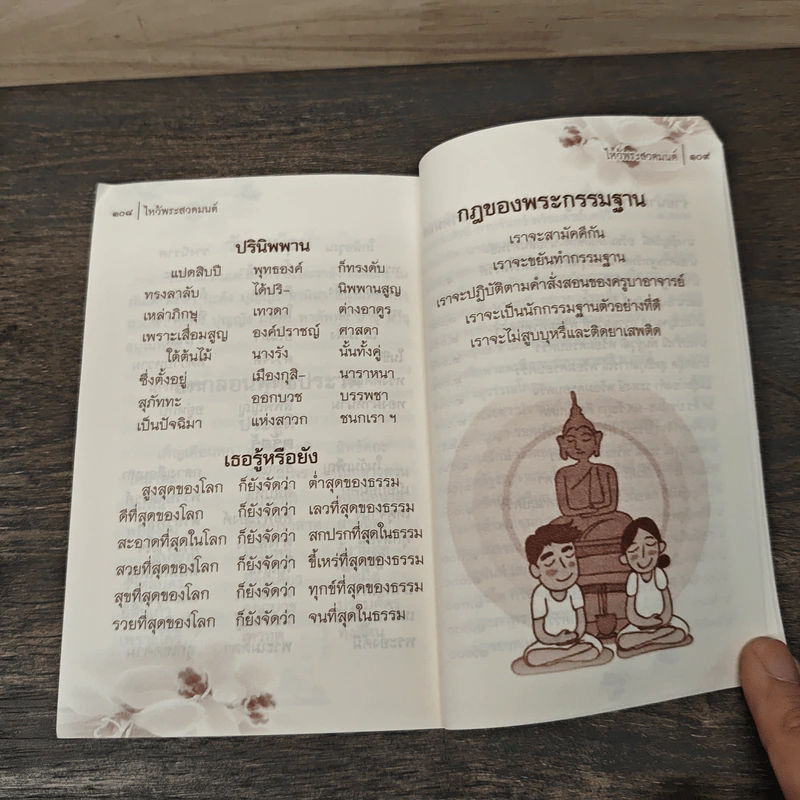 ๑๐๘ | ไหว้พระสวดมนต์
ปรินิพพาน
แปดสิบปี พุทธองค์ ก็ทรงดับ
ทรงลาลับ ได้ปริ– นิพพานสูญ
เหล่าภิกษุ เทวดา ต่างอาดูร
เพราะเสื่อมสูญ องค์ปราชญ์ ศาสดา
ใต้ต้นไม้ นางรัง นั้นทั้งคู่
ซึ่งตั้งอยู่ เมืองกุสิ– นาราหนา
สุภัททะ ออกบวช บรรพชา
เป็นปัจฉิมา แห่งสาวก ชนกเรา ฯ
เธอรู้หรือยัง
สูงสุดของโลก ก็ยังจัดว่า ต่ำสุดของธรรม
ดีที่สุดของโลก ก็ยังจัดว่า เลวที่สุดของธรรม
สะอาดที่สุดในโลก ก็ยังจัดว่า สกปรกที่สุดในธรรม
สวยที่สุดของโลก ก็ยังจัดว่า ขี้เหร่ที่สุดของธรรม
สุขที่สุดของโลก ก็ยังจัดว่า ทุกข์ที่สุดของธรรม
รวยที่สุดของโลก ก็ยังจัดว่า จนที่สุดในธรรม
ไหว้พระสวดมนต์ | ๑๐๙
กฎของพระกรรมฐาน
เราจะสามัคคีกัน
เราจะขยันทำกรรมฐาน
เราจะปฏิบัติตามคำสั่งสอนของครูบาอาจารย์
เราจะเป็นนักกรรมฐานตัวอย่างที่ดี
เราจะไม่สูบบุหรี่และติดยาเสพติด